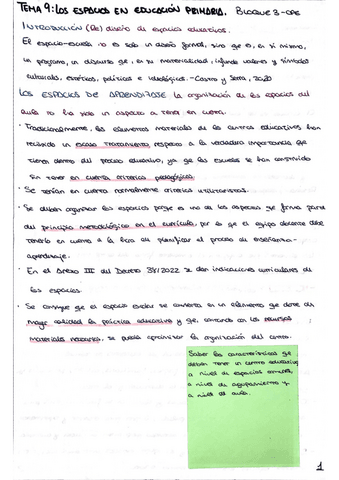 TEMA 9: LOS ESPACIOS EN EDUCACIÓN PRIMARIA. BLOQUE 3-OPE
INTRODUCCIÓN (Re) diseño de espacios educativos.
El espacio-escuela no es solo un diseño formal, sino qe es, en sí mismo,
un programa, un discurso qe, en su materialidad, infunde valores y símbolos
culturales, estéticos, políticos e ideológicos. -Castro y Serra, 2020
LOS ESPACIOS DE APRENDIZAJE La organización de los espacios del
aula no ha sido un aspecto a tener en cuenta.
· Tradicionalmente, los elementos materiales de los centros educativos han
recibido un escaso tratamiento respecto a la verdadera importancia qe
tienen dentro del proceso educativo, ya qe las escuelas se han construido
sin tener en cuenta criterios pedagógicos.
· Se tenían en cuenta normalmente criterios utilitaristas.
· Se deben organizar los espacios porqe es uno de los aspectos qe forma parte
del principio metodológico en el currículo, por lo qe el equipo docente debe
tenerlo en cuenta a la hora de planificar el proceso de enseñanza-
aprendizaje.
· En el Anexo III del Decreto 38/2022 se dan indicaciones curriculares de
los espacios.
· Se consigue qe el espacio escolar se convierta en un elemento qe dote de
mayor calidad la práctica educativa y qe, contando con los recursos
materiales necesarios, se pueda optimizar la organización del centro.
Saber las características qe
deben tener un centro educativo
a nivel de espacios comunes,
a nivel de agrupamientos y
a nivel de aula.
1